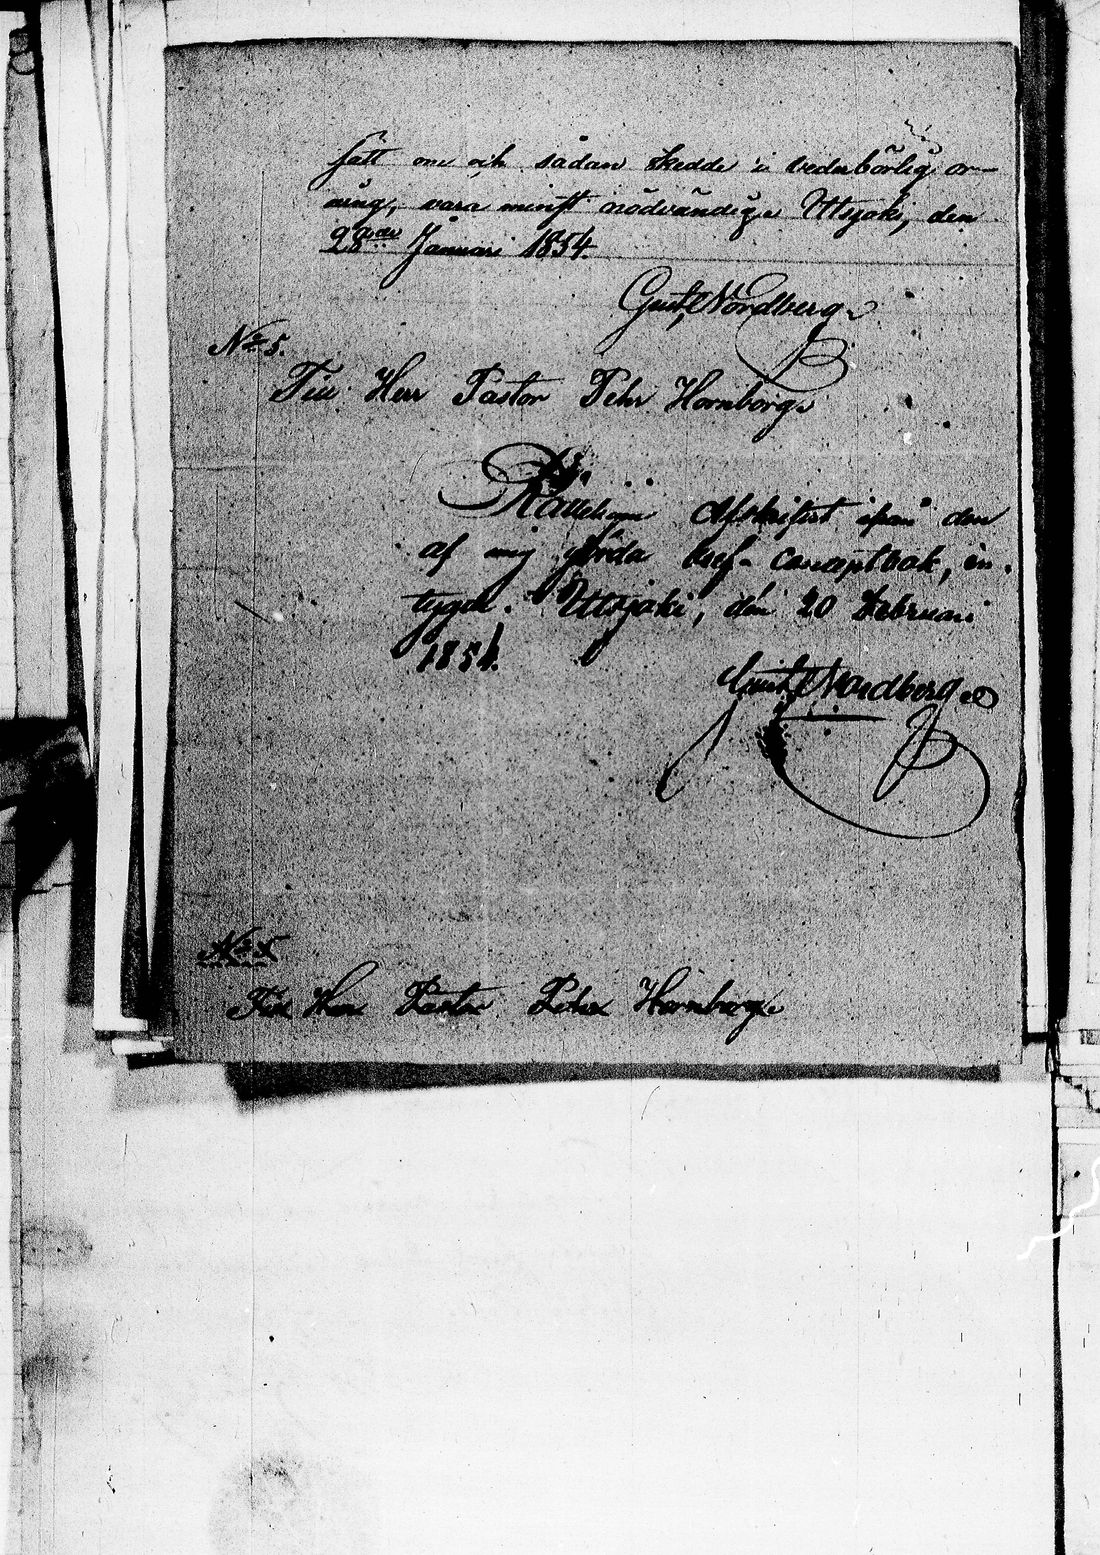 sätt om och sådan skedde i vederbörlig ord-
ning, vara minst nödvändig. Uttsjoki, den
28de Januari 1854.
Gust. Nordberg.
No 5.
Till Herr Pastor Pehr Hornborg.
Afskrift ifrån den
af mig förda bref-conceptbok, in-
tygar. Uttsjoki, den 20 Februari
1854.
Gust. Nordberg
No 5
Till Herr Pastor Pehr Hornborg.